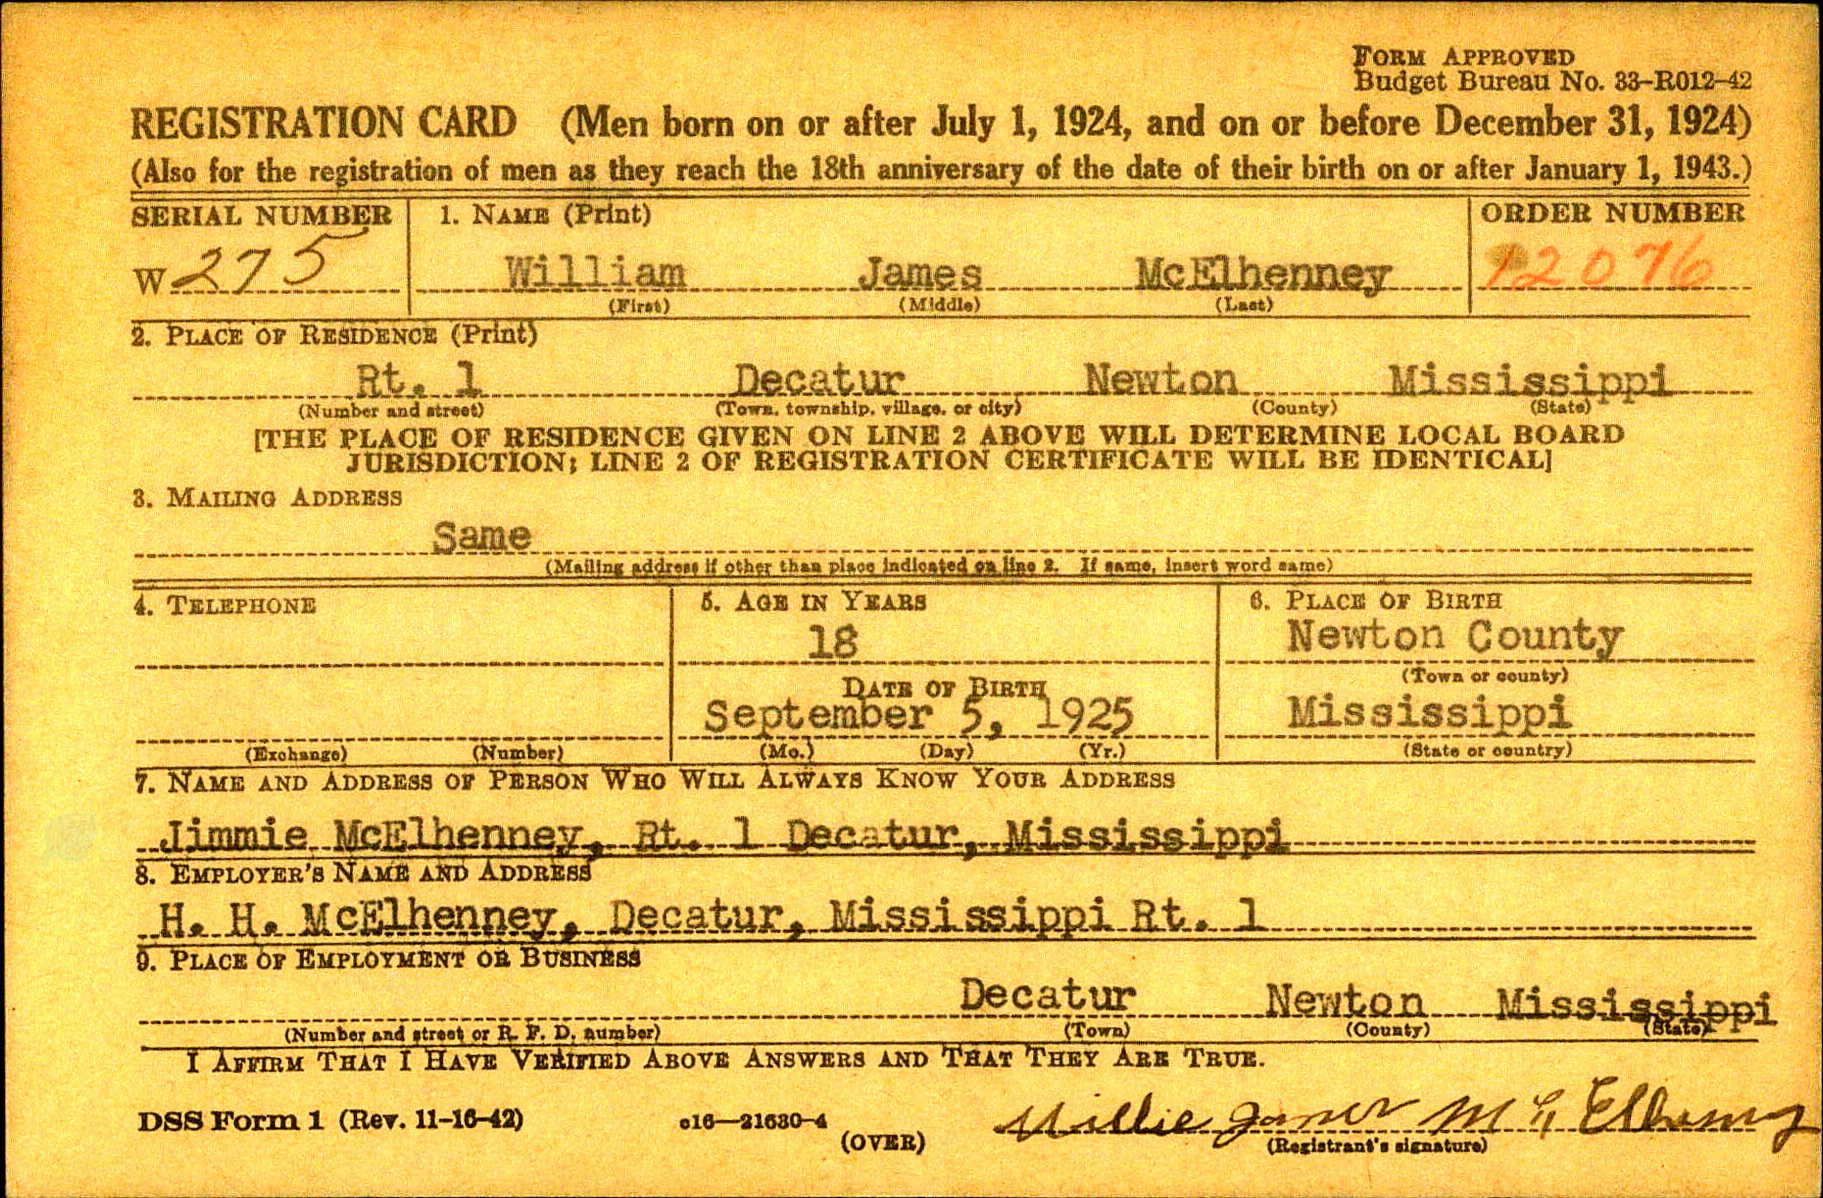 FORM APPROVED
Budget Bureau No. 33-R012-42
REGISTRATION CARD (Men born on or after July 1, 1924, and on or before December 31, 1924)
(Also for the registration of men as they reach the 18th anniversary of the date of their birth on or after January 1, 1943.)
SERIAL NUMBER 1. NAME (Print) ORDER NUMBER
W 275 William James McElhenney 12076
(First) (Middle) (Last)
2. PLACE OF RESIDENCE (Print)
Rt. 1 Decatur Newton Mississippi
(Number and street) (Town, township, village, or city) (County) (State)
[THE PLACE OF RESIDENCE GIVEN ON LINE 2 ABOVE WILL DETERMINE LOCAL BOARD
JURISDICTION; LINE 2 OF REGISTRATION CERTIFICATE WILL BE IDENTICAL]
3. MAILING ADDRESS
Same
(Mailing address if other than place indicated on line 2. If same, insert word same)
4. TELEPHONE 5. AGE IN YEARS 6. PLACE OF BIRTH
18 Newton County
(Town or county)
DATE OF BIRTH
September 5, 1925 Mississippi
(Exchange) (Number) (Mo.) (Day) (Yr.) (State or country)
7. NAME AND ADDRESS OF PERSON WHO WILL ALWAYS KNOW YOUR ADDRESS
Jimmie McElhenney, Rt. 1 Decatur, Mississippi
8. EMPLOYER'S NAME AND ADDRESS
H. H. McElhenney, Decatur, Mississippi Rt. 1
9. PLACE OF EMPLOYMENT OR BUSINESS
Decatur Newton Mississippi
(Number and street or R. F. D. number) (Town) (County) (State)
I AFFIRM THAT I HAVE VERIFIED ABOVE ANSWERS AND THAT THEY ARE TRUE.
DSS Form 1 (Rev. 11-16-42) c16—21630-4 (OVER) Willie James
(Registrant's signature)